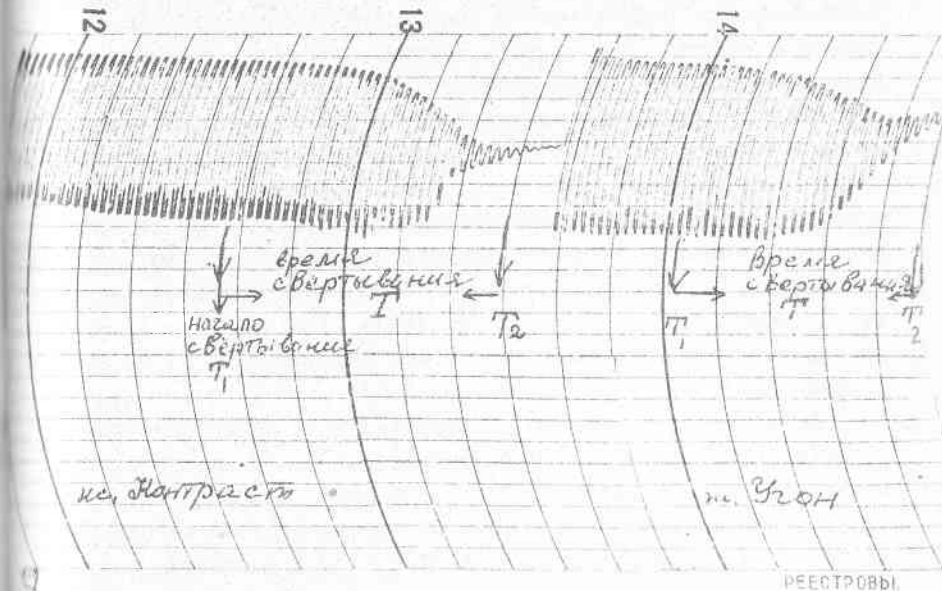 12
13
14
время
свертывания
T
начало
свертывания
T1
T2
T1
Время
свертывания
T
T2
Контраст
Угон
РЕЕСТРОВЫ